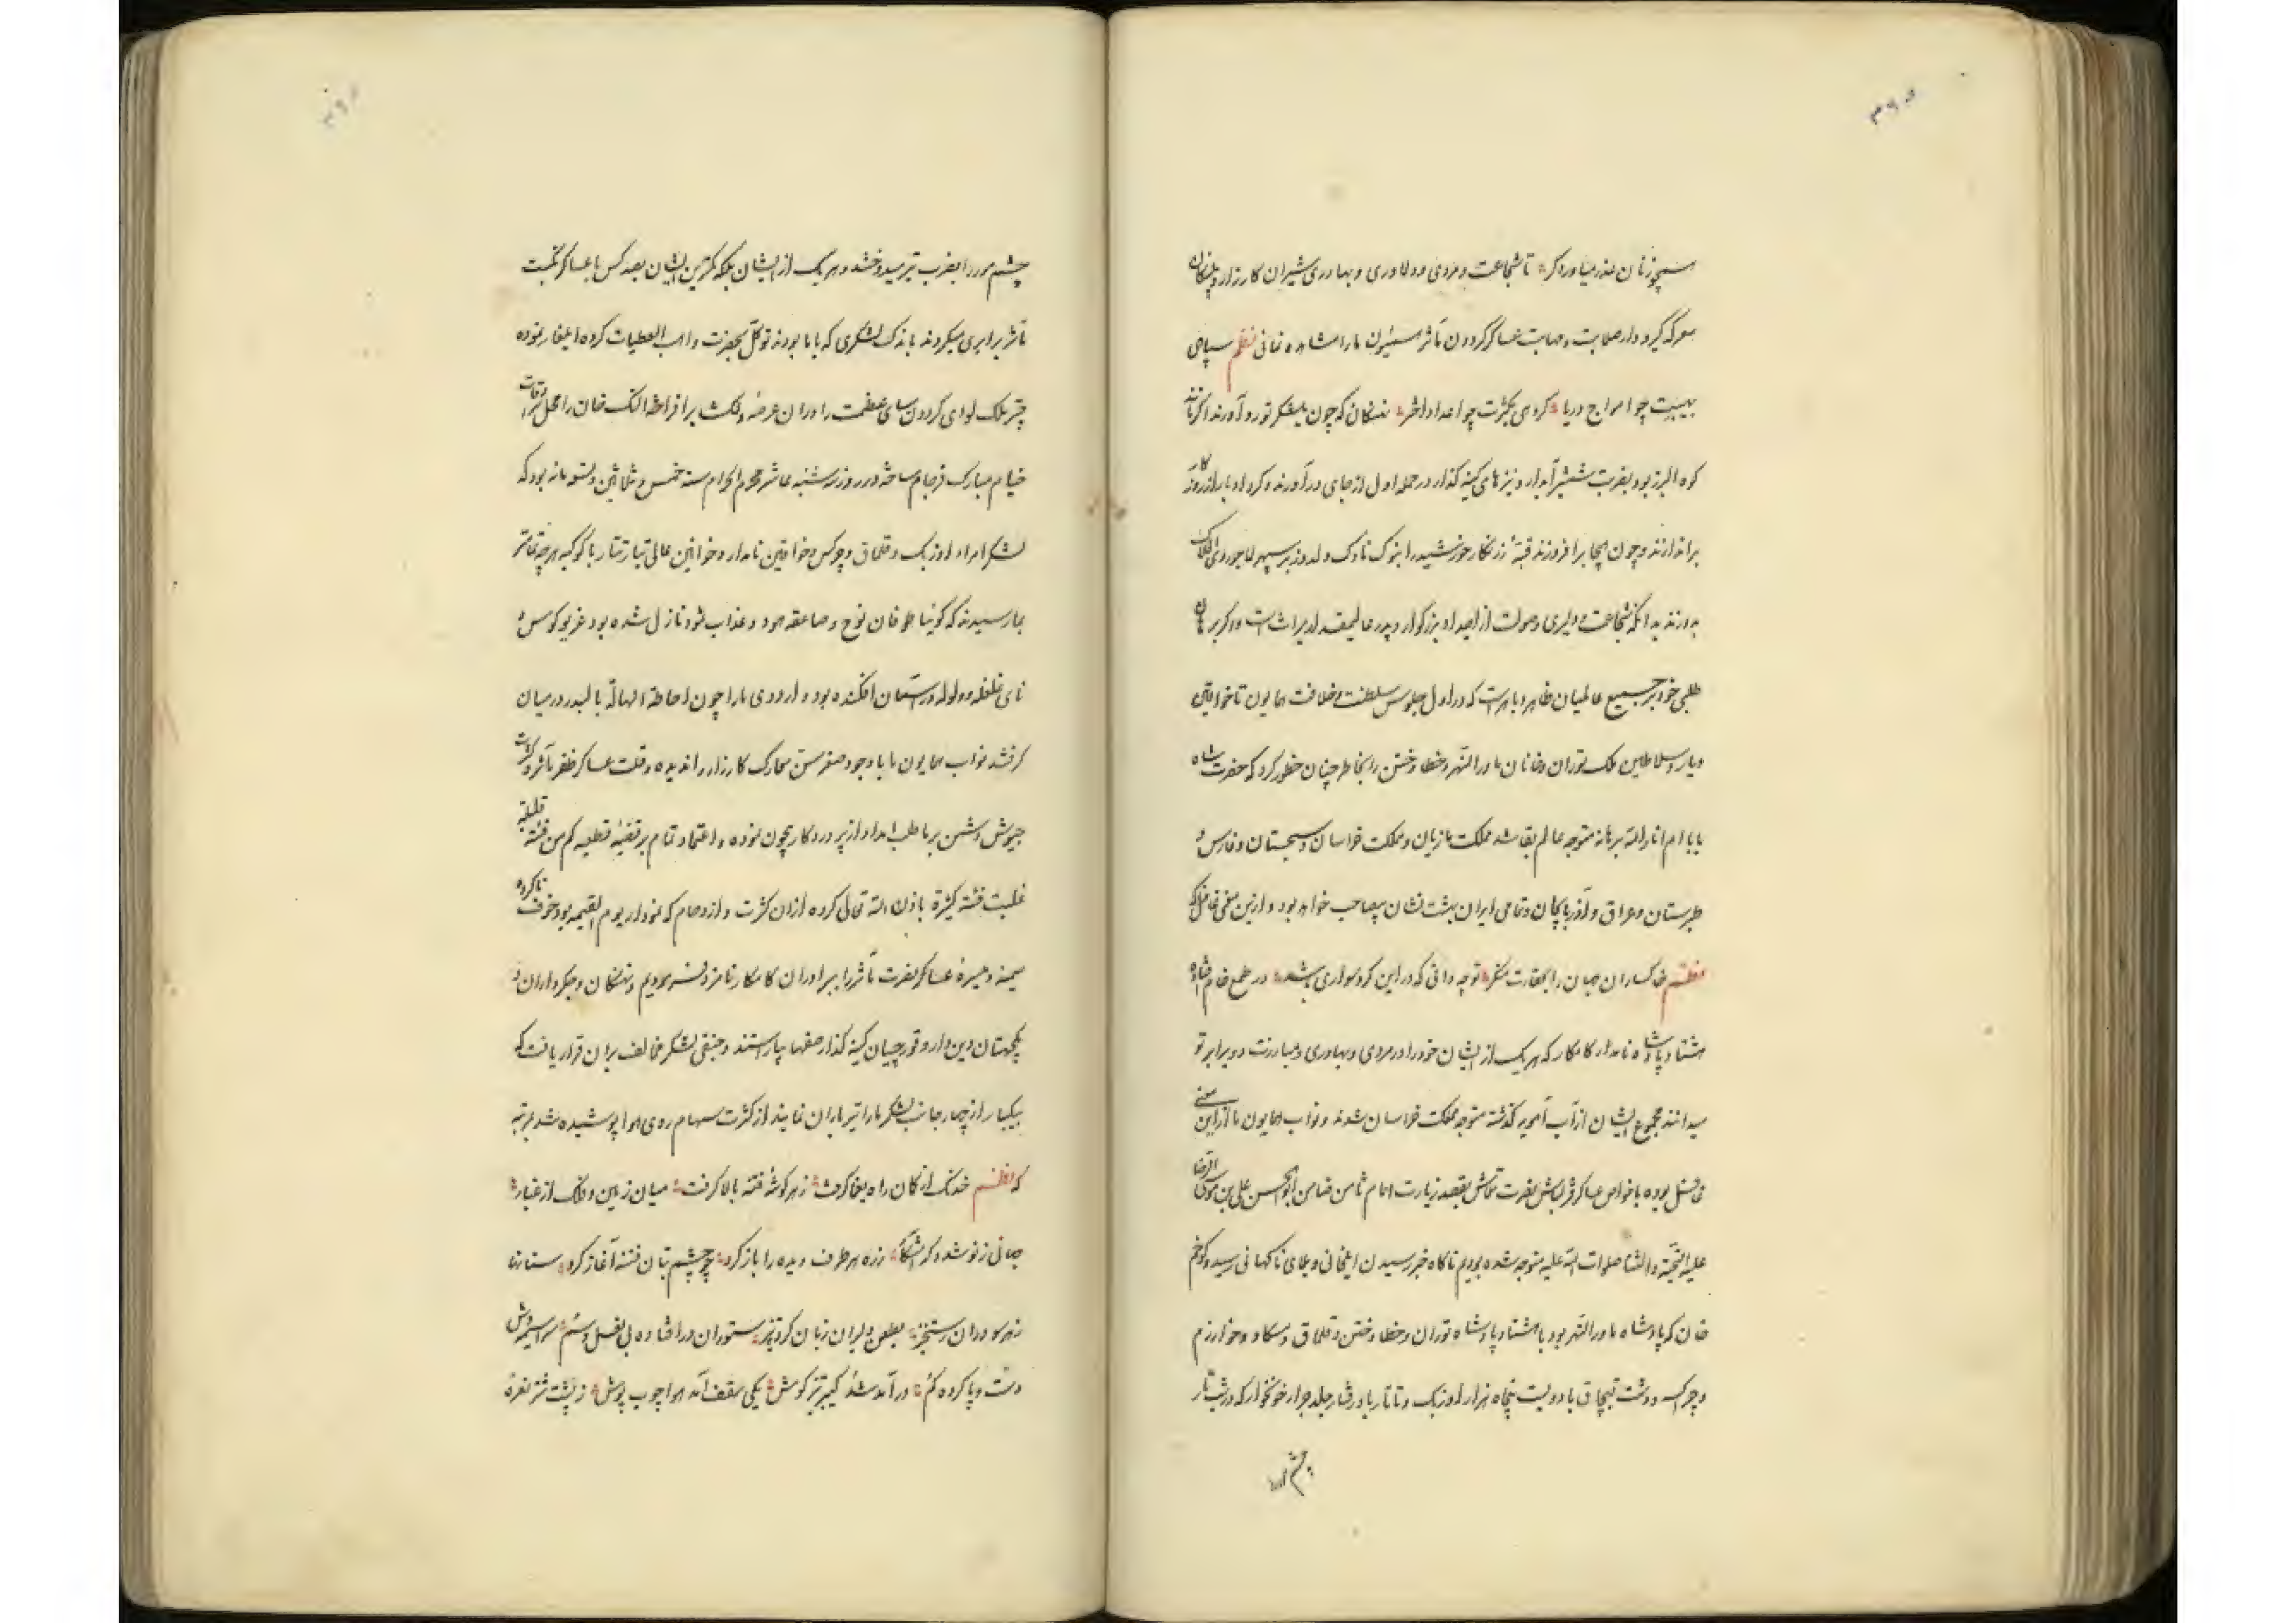 ۳۶۵
همچو زنان عذر میاور دگر تا شجاعت و مردی و دلاوری و بهادری شیران کارزار و پلنکان
معرکه گیرودار صلابت و مهابت عساکر گردون مآثر همایون ما را مشاهده نمائی نظم سپاهی
بهیبت چو امواج دریا گروهی بکثرت چو اعداد اختر نهنکان که چون بلشکر تو رو آورند اگر مانند
کوه البرز بود بضرب شمشیر آبدار و نیزهای کینه گذار در حمله اول از جای درآورند و گرد ادبار از روزگار
براندازند و چون هیجا برافروزند قبهٔ زرنکار خورشید را بنوک ناوک دلدوز بر سپهر لاجوردی افلاک
بدوزند بدانکه شجاعت و دلیری و صولت از اجداد بزرکوار و پدر عالیمقدار میراث است و اکر بر
طلبی خود بر جمیع عالمیان ظاهر و باهر است که در اول جلوس سلطنت و خلافت همایون تا خواقین
دیار و سلاطین ملک توران و خانان ماورالنهر و خطا و ختن را بخاطر چنان خطور کرد که حضرت شاه
بابا ام انارالله برهانه متوجه عالم بقا شد مملکت مازیان و مملکت خراسان و سیستان و فارس و
طبرستان و عراق و آذربایجان و تمامی ایران بهشت نشان بیصاحب خواهد بود و ازین معنی غافل که
نظم خاکساران جهان را بحقارت منکر توچه دانی که در این کرد سواری باشد در طمع خام افتاده
هشتاد پادشاه نامدار کامکار که هر یک از ایشان خود را در مردی و بهادری و مبارزت دو برابر تو
میدانند مجموع ایشان از آب آمویه گذشته متوجه مملکت خراسان شدند و نواب همایون ما از این معنی
غافل بوده با خواص عساکر قزلباش نصرت تلاش بقصد زیارت امام ثامن ضامن ابوالحسن علی بن موسی الرضا
علیه التحیة والثنا صلوات الله علیه متوجه شده بودیم ناکاه خبر رسیدن ایلغانی و بلای ناکهانی رسید کوکجم
خان که پادشاه ماورالنهر بود با هشتاد پادشاه توران و خطا و ختن و قلماق و سکاو و خوارزم
و چرکس و دشت قبچاق با دویست پنجاه هزار اوزبک و تاتار بادرفتار جلد جرار خونخوار که در شب تار
چشم مور را
چشم مور را بضرب تیر میدوختند و هر یک از ایشان بلکه کمترین ایشان بصد کس با عساکر نکبت
مآثر برابری میکردند باندک لشکری که با ما بودند توکل بحضرت واهب العطیات کرده ایلغار نموده
چتر فلک لوای کردون سای عظمت را در آن عرضه دلکشا برافراخته النک خان را محل سرادقات
خیام مبارک فرجام ساخته در روز سه شنبه عاشر محرم الحرام سنه خمس و ثلاثین و تسعمائه بود که
لشکر امراء اوزبک و قلماق و چرکس و خواقین نامدار و خوانین عالی تبار تتار با کوکبه هرچه تمامتر
بما رسیدند که کوئیا طوفان نوح و صاعقه هود و عذاب ثمود نازل شده بود غریو کوس و
نای غلغله و ولوله در آسمان افکنده بود و اردوی ما را چون احاطة الهالة بالبدر در میان
کرفتند نواب همایون ما با وجود صغر سن معارک کارزار را ندیده و قلت عساکر ظفر مآثر و کثرت
جیوش دشمن بر ما طلب امداد از پروردکار بیچون نموده و اعتماد تمام بر قضیهٔ قطعیه کم من فئة قلیلة
غلبت فئة کثیرة باذن الله تعالی کرده از ان کثرت و ازدحام که نمودار یوم القیمه بود خوف ناکرده
میمنه و میسرهٔ عساکر نصرت مآثر را ببرادران کامکار نامزد فرمودیم و نهنکان و جکرداران و
یکجهتان دین دار و قورچیان کینه گذار صفها بیاراستند و جنقی لشکر مخالف بر ان قرار یافت که
بیکبار از چهار جانب لشکر ما را تیر باران نمایند از کثرت سهام روی هوا پوشیده شد بمرتبه
که نظم خدنک از کمان راه یغما کرفت ز هر کوشهٔ فتنه بالا کرفت میان زمین و فلک از غبار
جهانی ز نو شد دکر آشکار زره هر طرف دیده را باز کرد چو چشم بتان فتنه آغاز کرد سنانها
ز هر سو دران رستخیز بطعن دلیران زبان کرد تیز ستوران درافتاده بی نعل و سم سراسیمه وش
دست و پا کرده کم درآمد شد کیبر تیز کوش یکی سقف آمد هوا چوب پوش ز پشت شتر نعرهٔ